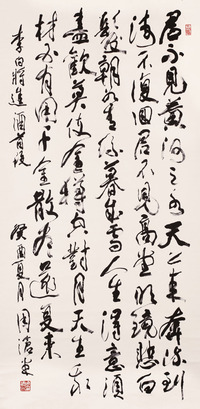 君不見黃河之水天上來奔流到
海不復回君不見高堂明鏡悲白
髮朝如青絲暮成雪人生得意須
盡歡莫使金樽空對月天生我
材必有用千金散盡還復來
李白將進酒首段 癸酉夏月周滄米